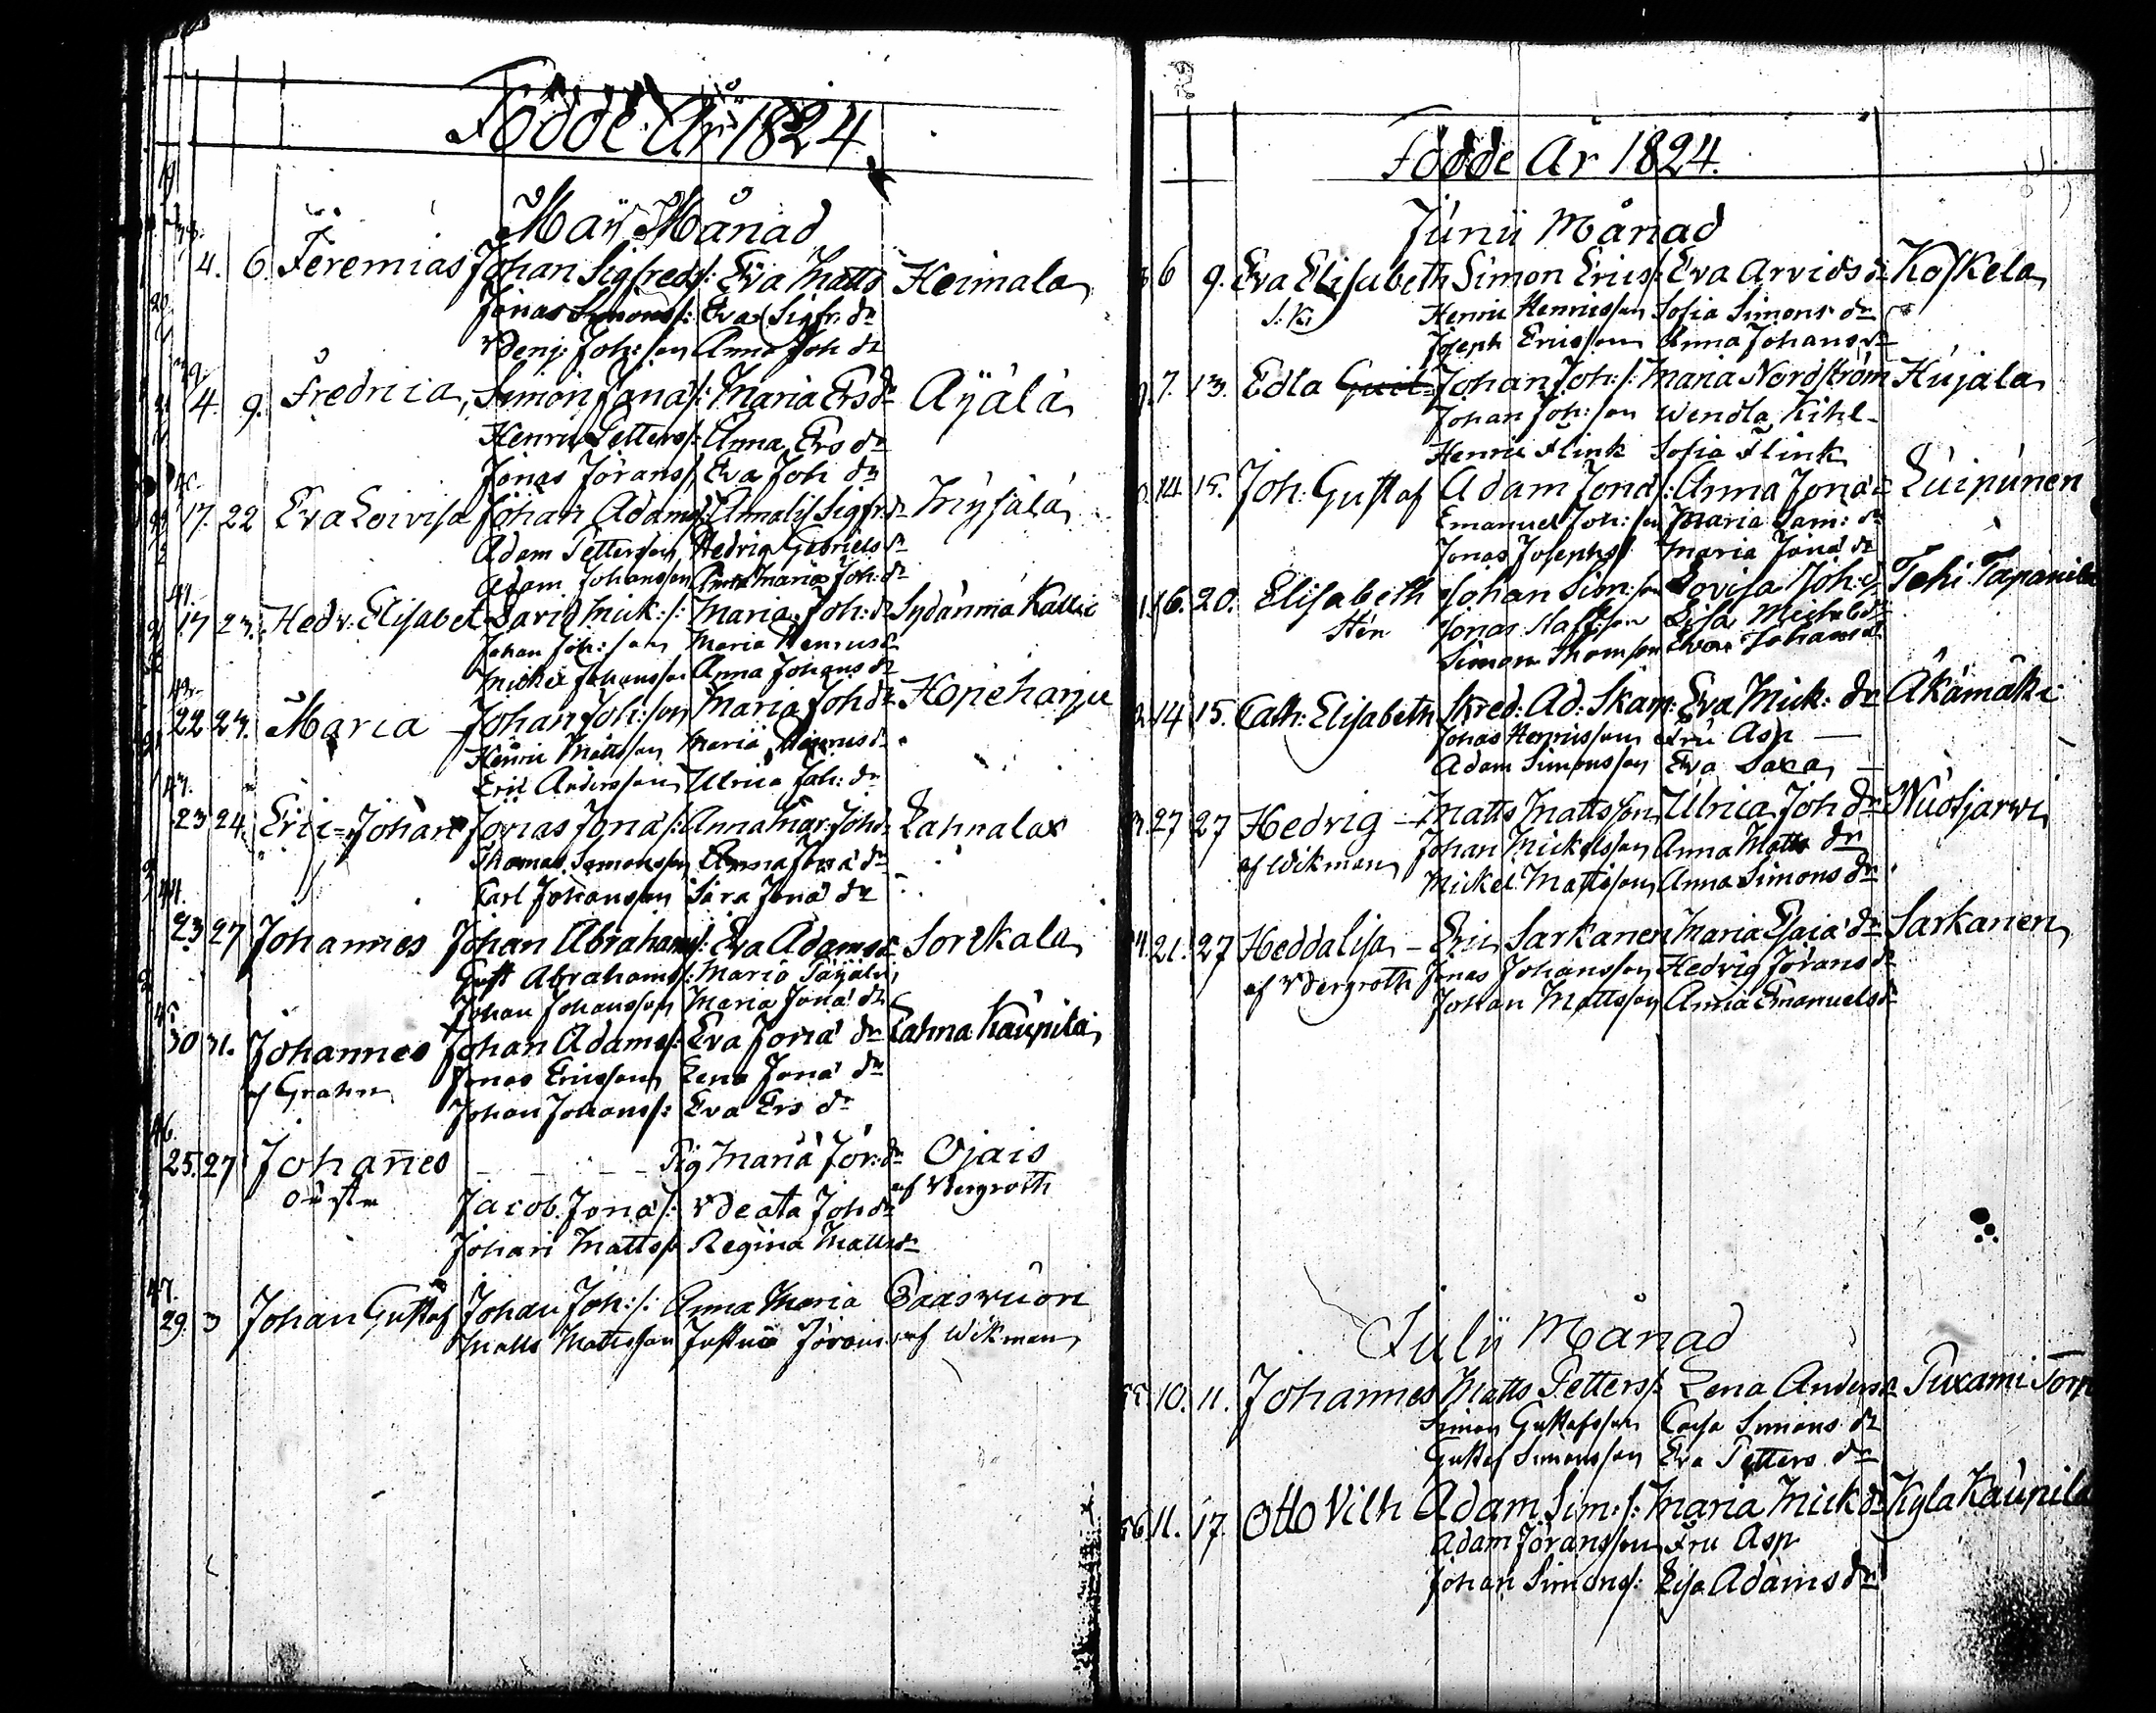 Födde År 1824.
Maÿ Månad
4. 6. Jeremias Johan Sigfreds/: Eva Matts Heimala
Jonas Simons/: Eva Sigfr. dr
Benj: Joh:son Anna Joh dr
39.
4. 9. Fredrica, Simon Jona/: Maria Ers dr Äÿälä
Henric Petters/: Anna Ers dr
Jonas Jörans/ Eva Joh dr
40.
17. 22 Eva Lovisa Johan Adams/: Annalis Sigfr. dr
Adam Pettersson Hedvig Gabriels dr
Adam Johansson Anna Maria Joh: dr
41.
17 23. Hedv: Elisabet David Mick:/: Maria Joh: dr Sydänmä Kallio
Johan Joh:son Maria Henrics dr
Mickel Johansson Anna Johans dr
42.
22 23. Maria Johan Joh:son Maria Joh dr Kopeharju
Henric Mattsson Maria Henrics dr
Eric Andersson Ulrica Joh: dr
43.
23 24. Eric=Johan Jonas Jona/: Anna Mar: Joh dr Lahnalax
Thomas Simonsson Anna Jona dr
Carl Johansson Sara Jona dr
44.
23 27 Johannes Johan Abrahams/: Eva Adams dr Sorckala
Gust Abrahams/: Maria
Johan Johansson Maria Jona dr
45
30 31. Johannes Johan Adams/: Eva Jona dr Lahna Kaupila
af Grahn Jonas Ericsson Lena Jona dr
Johan Johans/: Eva Ers dr
46.
25. 27 Johañes — — — — Pig Maria Jör: dr Ojais
oästa af Bergroth
Jacob Jona/: Beata Joh dr
Johan Matts/: Regina Matts dr
47.
29. 3 Johan Gustaf Johan Joh:/: Anna Maria Paasvuori
Matts Mattsson Justina Jörans af Wikman
Födde År 1824.
Junii Månad
6 9. Eva Elisabeth Simon Erics/: Eva Arvids dr Koskela
S. K. Henric Henricsson Sofia Simons dr
Joseph Ericsson Anna Johans dr
7. 13. Edla Johan Joh:/: Maria Nordström Kujala
Johan Joh:son Wendla Kihl-
Henric Flink Sofia Flink
14 15. Joh: Gustaf Adam Jona/: Anna Jona dr Luipunen
Emanuel Joh:son Maria Sam: dr
Jonas Josephs/ Maria Jona dr
16. 20. Elisabeth Johan Sim:son Lovisa Joh: d. Tehi Tapanila
Stén Jonas Staff:son Lisa Michels dr
Simon Thomson Eva Johans dr
14 15. Cath: Elisabeth Skred: Ad: Skam: Eva Mick: dr Äkämäki
Johas Henricsson Fru Asp —
Adam Simonsson Eva Saxa —
27 27 Hedvig — Matts Mattsson Ulrica Joh dr Nuotjarwi
af Wikman Johan Mickelsson Anna Matts dr
Mickel Mattsson Anna Simons dr
21. 27 Heddalisa — Eric Sarkanen Maria Esaia dr Sarkanen
af Bergroth Jonas Johansson Hedvig Jörans dr
Johan Mattsson Anna Emanuels dr
Julii Månad
55. 10. 11. Johannes Matts Petters/: Lena Anders dr
Simon Gustafsson Caisa Simons dr
Gustaf Simonsson Eva Petters dr
56 11. 17. Otto Vilh Adam Sim:/: Maria Mick dr Kyla Kaupila
Adam Jöransson Fru Asp
Johan Simons/: Lisa Adams dr